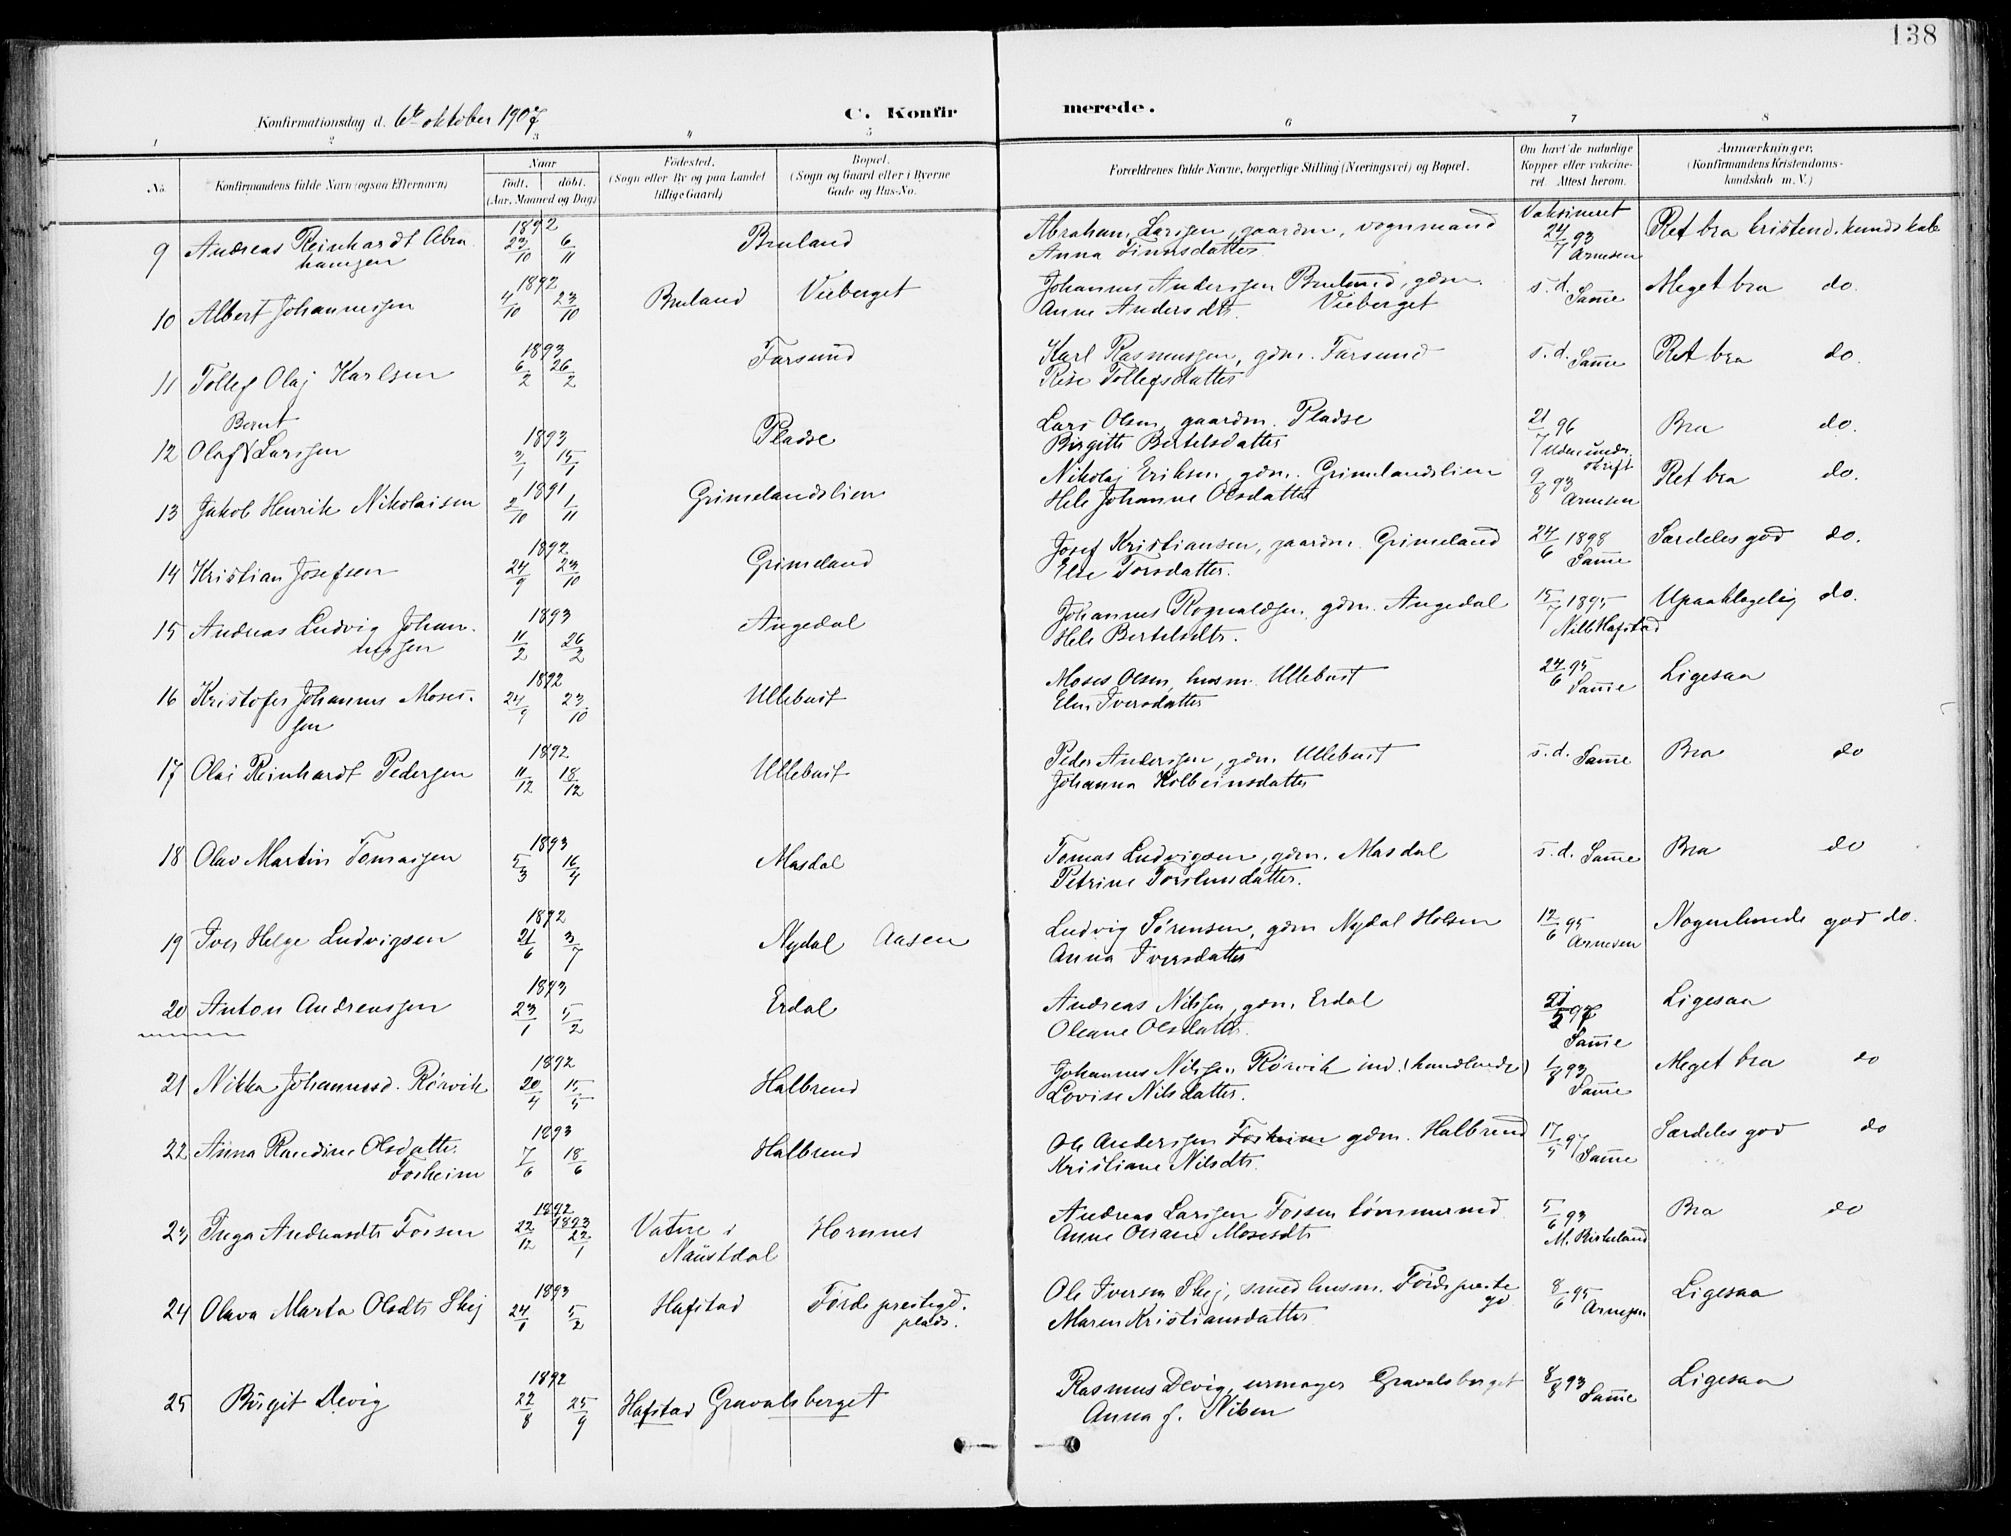 138
Konfirmationsdag d. 6te oktober 1907
C. Konfirmerede.
1 2 3 4 5 6 7 8
No. Konfirmandens fulde Navn (ogsaa Efternavn) Naar født, døbt. (Aar, Maaned og Dag) Fødested. (Sogn eller By og paa Landet tillige Gaard) Bopæl. (Sogn og Gaard eller i Byerne Gade og Hus-No. Forældrenes fulde Navne, borgerlige Stilling (Næringsvei) og Bopæl. Om havt de naturlige Kopper eller vakcineret. Attest herom. Anmærkninger. (Konfirmandens Kristendomskundskab m. V.)
9 Andreas Reinhardt Abrahamsen 1892 23/10 6/11 Bruland Abraham Larssen, gaardm, vognmand Vaksineret 24/7 93 Arnesen Ret bra kristend. kundskab
Anna Finnsdatter
10 Albert Johannessen 1892 4/10 23/10 Bruland Vieberget Johannes Anderssen Bruland, gdm. s. d. Samme Meget bra do.
Anne Andersdtr. Vieberget
11 Tollef Olaj Karlsen 1893 6/2 26/2 Farsund Karl Rasmussen, gdm. Farsund s. d. Samme Ret bra do.
Rise Tollefsdatter
12 Olaf Bernt Larssen 1893 3/1 15/1 Pladse Lars Olsen, gaardm. Pladse 21/7 96 Uden underskrift Bra do.
Birgitte Bertelsdatter
13 Jakob Henrik Nikolaisen 1891 2/10 1/11 Grimelandslien Nikolaj Eriksen, gdm. Grimelandslien 9/8 93 Arnesen Ret bra do.
Hele Johanne Olsdatter
14 Kristian Josefsen 1892 24/9 23/10 Grimeland Josef Kristiansen, gaardm. Grimeland 24/6 1898 Samme Særdeles god do.
Else Torsdatter.
15 Andreas Ludvig Johannessen 1893 11/2 26/2 Angedal Johannes Rognaldsen, gdm. Angedal 15/7 1895 Nils Hafstad Upaaklagelig do.
Hele Bertelsdtr.
16 Kristofer Johannes Mosessen 1892 24/9 23/10 Ullebust Moses Olsen, husm. Ullebust 24/6 95 Samme Ligesaa
Elen Iversdatter
17 Olai Reinhardt Pedersen 1892 11/12 18/12 Ullebust Peder Anderssen, gdm. Ullebust s. d. Samme Bra do
Johanna Kolbeinsdatter
18 Olav Martin Tomassen 1893 5/3 16/4 Masdal Tomas Ludvigsen, gdm. Masdal s. d. Samme Bra do
Petrine Torstensdatter.
19 Iver Helge Ludvigsen 1892 21/6 3/7 Nydal Aasen Ludvig Sørensen, gdm Nydal Holsen 12/6 95 Arnesen Nogenlunde god do.
Anna Iversdatter
20 Anton Andreassen 1893 23/1 5/2 Erdal Andreas Nilssen, gdm. Erdal 21/5 97 Samme Ligesaa
Oleane Olsdatter
21 Nikka Johannesd. Rørvik 1892 20/4 15/5 Halbrend Johannes Nilssen Rørvik ind. (handlende) 1/8 93 Samme Meget bra do
Lovise Nilsdatter.
22 Anna Randine Olsdatter Forheim 1893 7/6 18/6 Halbrend Ole Anderssen Forheim gdm. Halbrend 17/5 97 Samme Særdeles god do
Kristiane Nilsdtr.
23 Inga Andreasdtr Forsen 1892 22/12 1893 22/1 Vatne i Naustdal Hornnes Andreas Larssen Forsen tømmermd 5/6 93 M. Birkeland Bra do
Anne Oleane Mosesdtr
24 Olava Marta Olsdtr Skej 1893 24/1 5/2 Hafstad Førde prestegd. plads. Ole Iversen Skej, smed husm. Førde prestegd 8/6 95 Arnesen Ligesaa
Maren Kristiansdatter
25 Birgit Devig 1892 22/8 25/9 Hafstad Gravalsberget Rasmus Devig, urmager Gravalsberget 8/8 93 Samme Ligesaa
Anna f. Nilsen